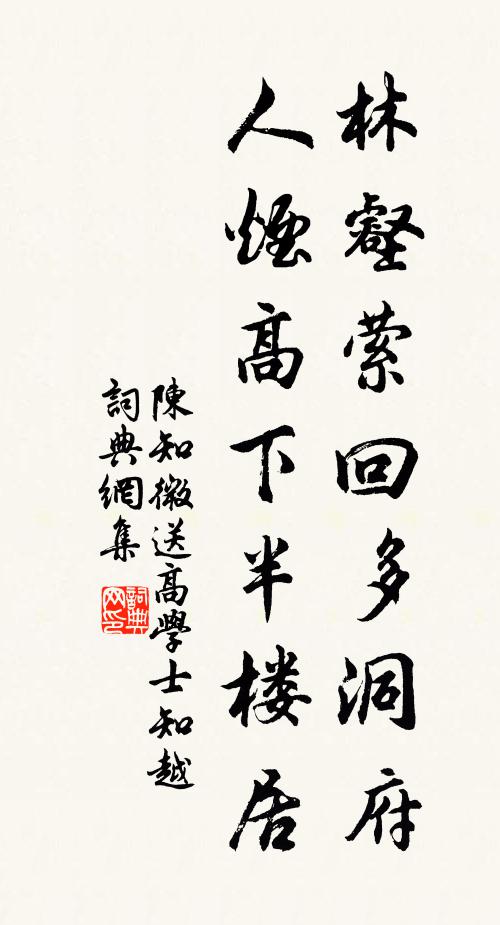 林壑萦回多洞府
人煙高下半楼居
陳知微送高學士知越
詞典網集
詞典网印